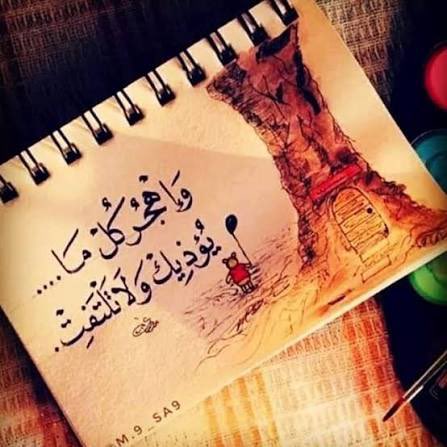 وَاهْجُر كُلْ مَا....
يُؤذِيكْ وَلَا تَلْتَفِتْ.
M.9_SA9